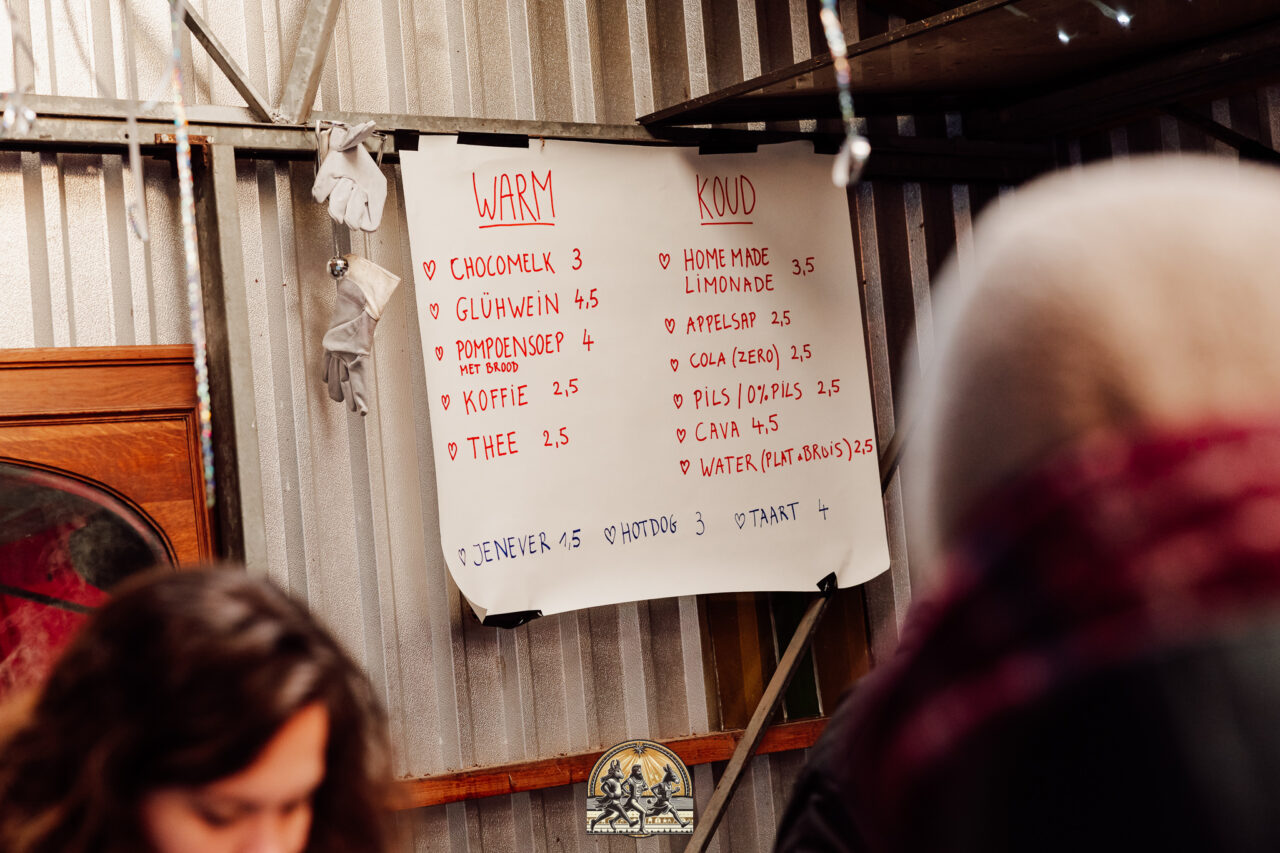 WARM
CHOCOMELK 3
GLÜHWEIN 4,5
POMPOENSOEP 4
MET BROOD
KOFFIE 2,5
THEE 2,5
KOUD
HOME MADE
LIMONADE 3,5
APPELSAP 2,5
COLA (ZERO) 2,5
PILS / 0% PILS 2,5
CAVA 4,5
WATER (PLAT & BRUIS) 2,5
JENEVER 1,5 HOTDOG 3 TAART 4